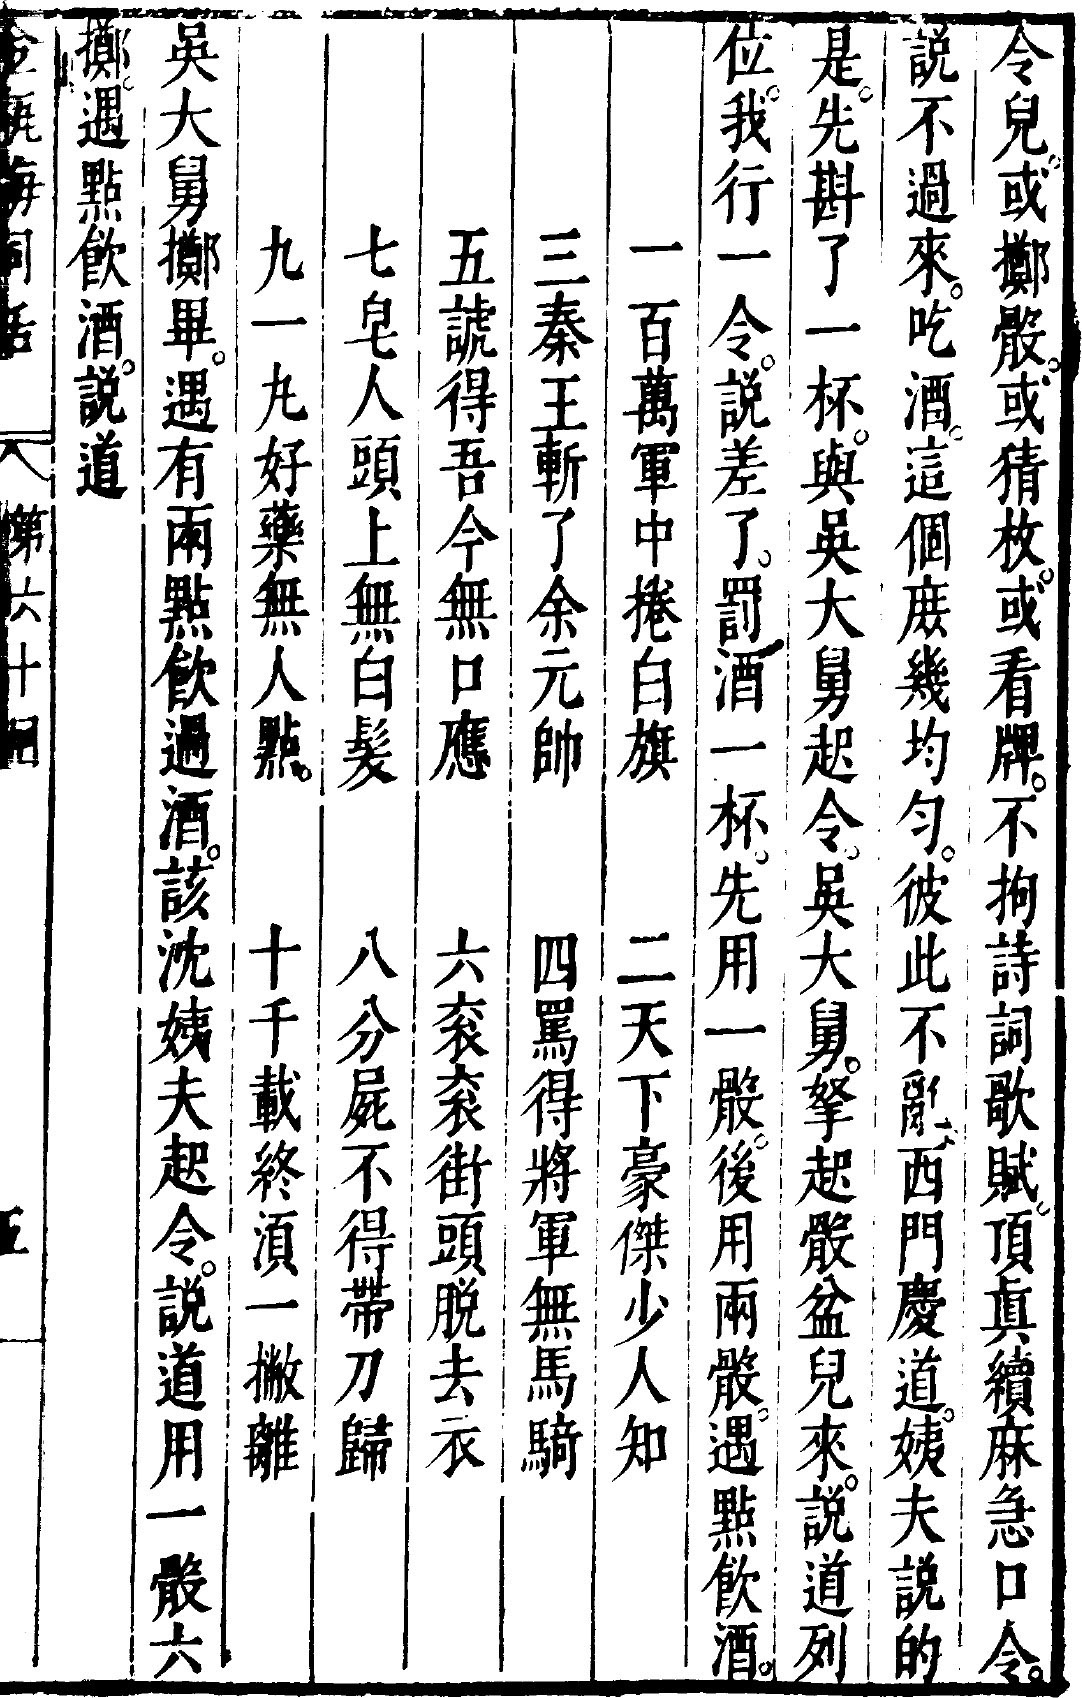 令兒。或擲骰。或猜枚。或看牌。不拘詩詞歌賦。頂眞續麻急口令。
說不過來。吃酒。這個庶幾均勻。彼此不亂。西門慶道。姨夫說的
是。先斟了一杯。與吳大舅起令。吳大舅。拏起骰盆兒來。說道列
位。我行一令。說差了。罰酒一杯。先用一骰。後用兩骰。遇點飲酒。
一百萬軍中捲白旗　二天下豪傑少人知
三秦王斬了余元帥　四罵得將軍無馬騎
五諕得吾今無口應　六衮衮街頭脫去衣
七皂人頭上無白髮　八分屍不得帶刀歸
九一丸好藥無人點。　十千載終湏一撇離
吳大舅擲畢。遇有兩點飲過酒。該沈姨夫起令。說道用一骰六
擲。遇點飲酒。說道
金瓶梅詞話　第六十回　五